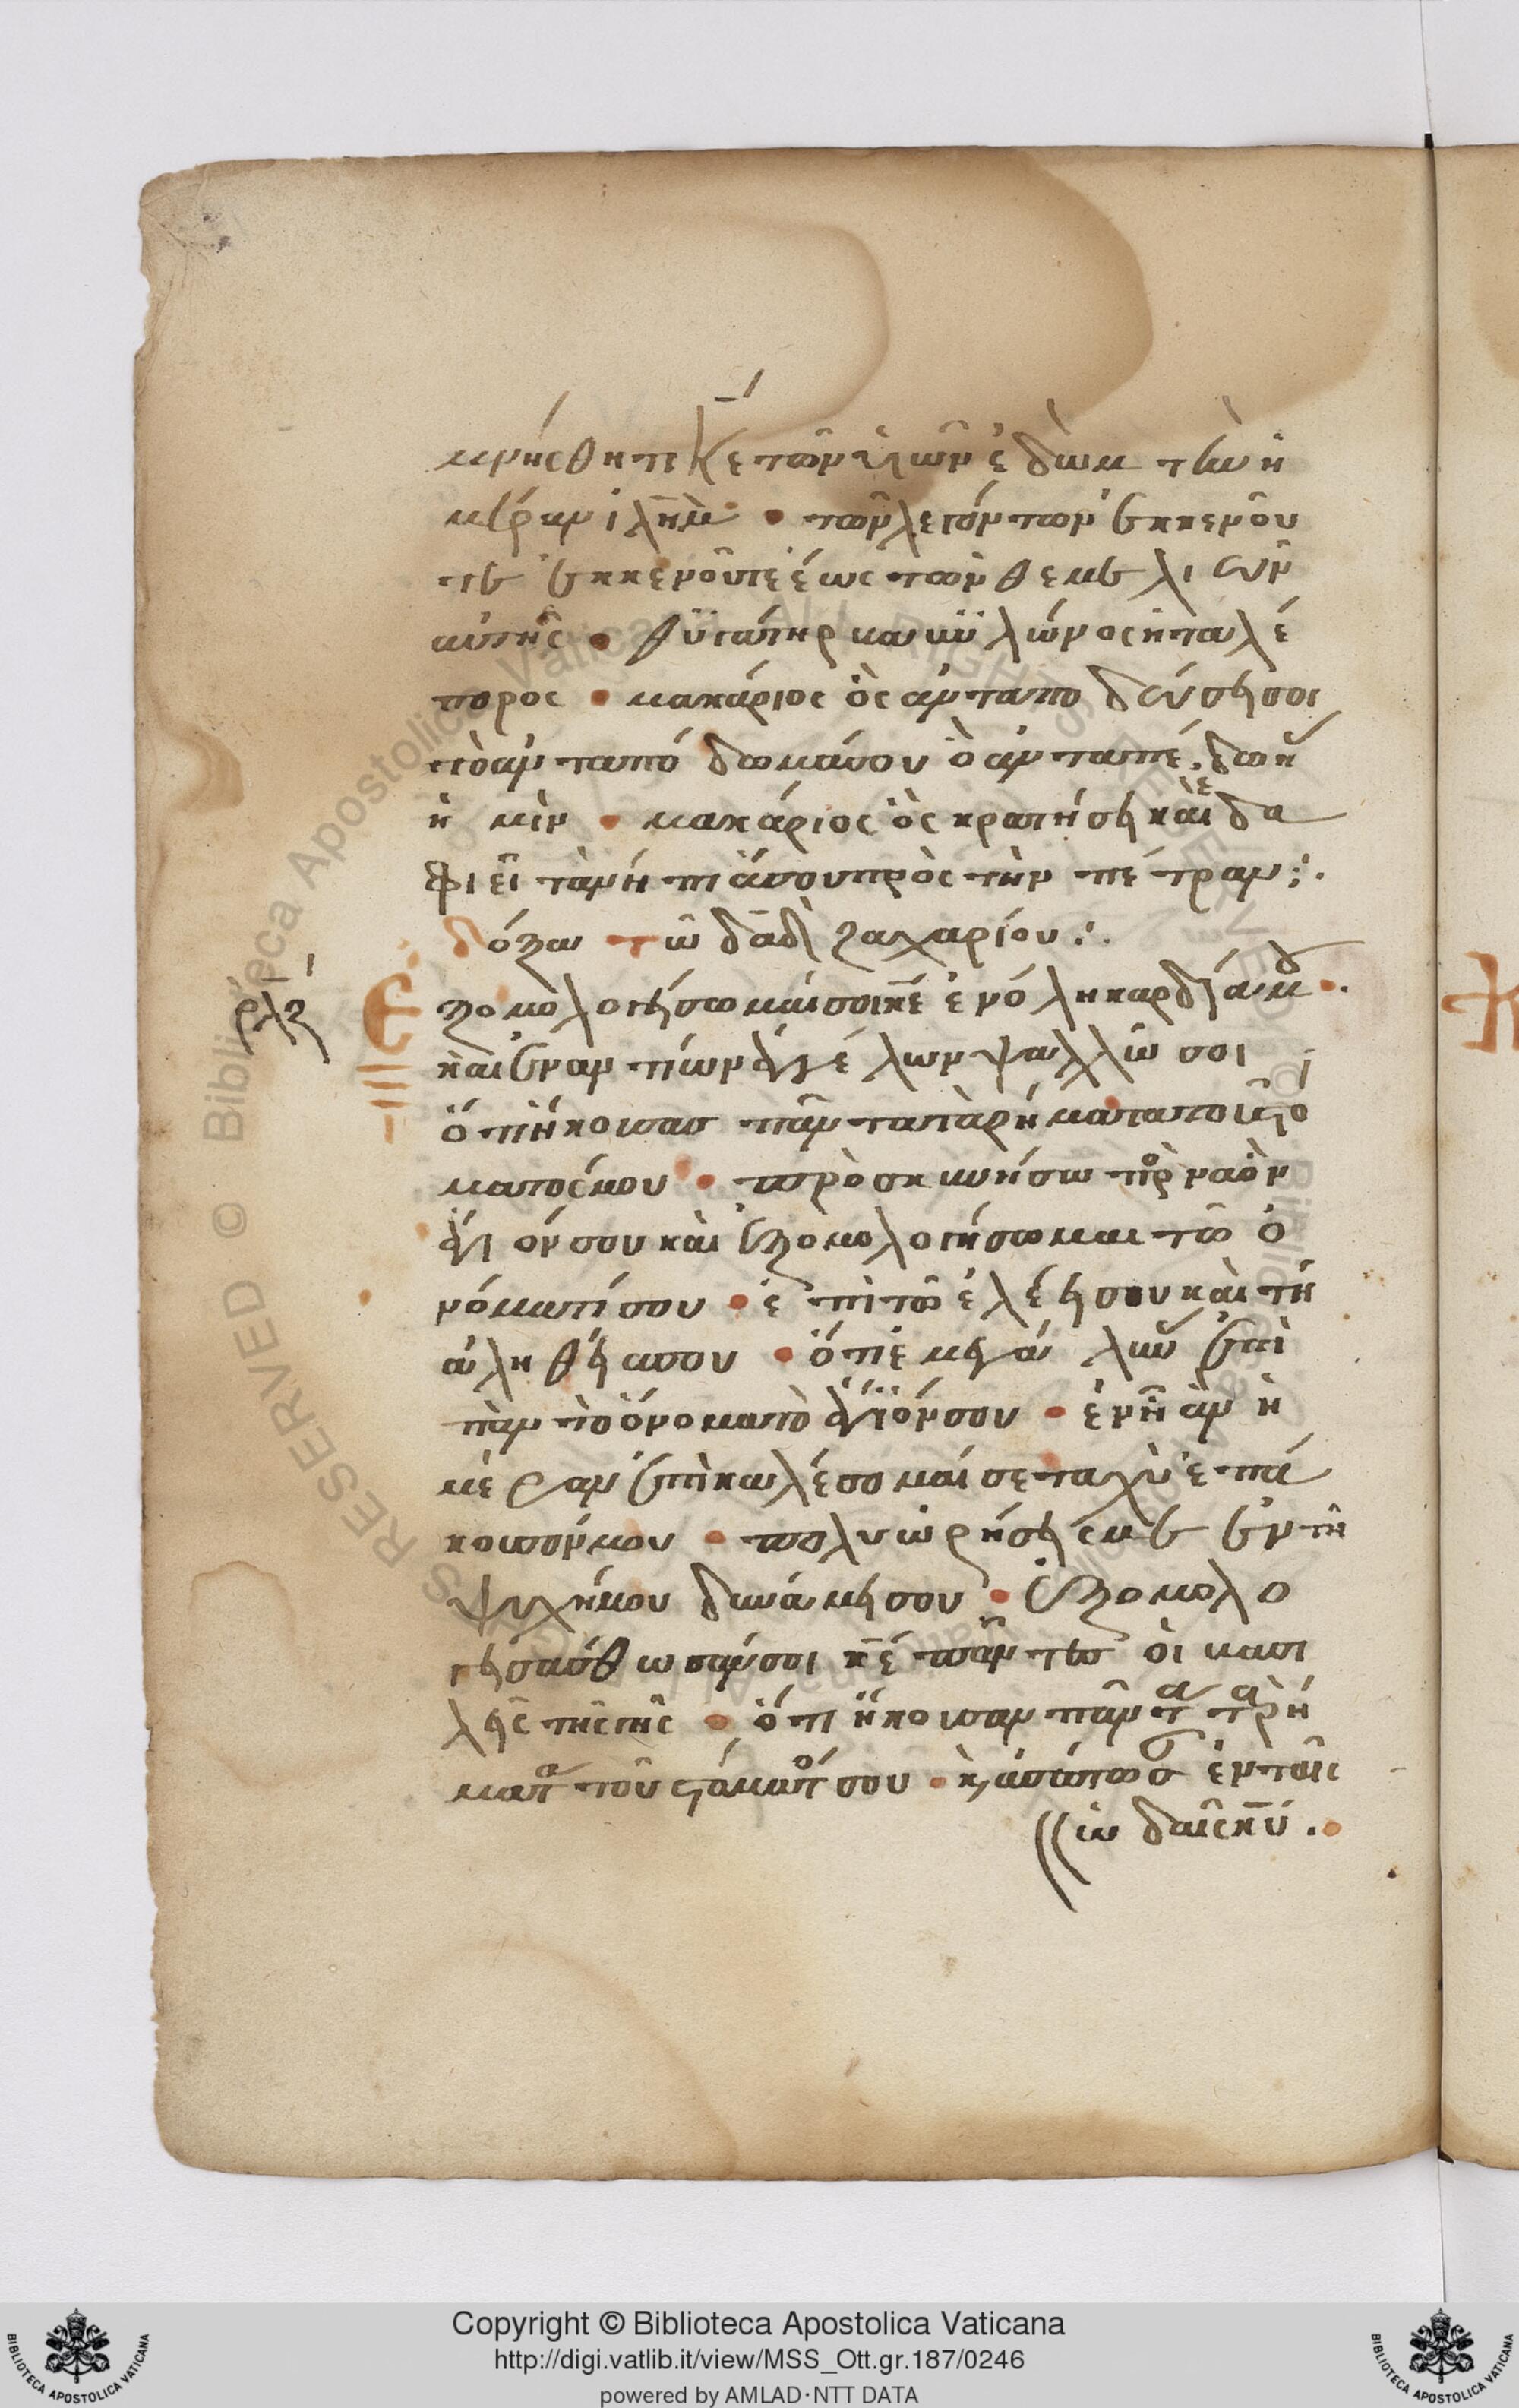 μνήσθητι κ̅ε̅ τῶν ὑιῶν ἐδὼμ τὴν ἡ
μέραν ἱλη̅μ̅ • τῶν λεγόντων ἐκκενοῦ
τε ἐκκενοῦτε ἕως τῶν θεμελίων
αὐτῆς • θϋγάτηρ βαβϋλώνος ἡ ταλέ
πορος • μακάριος ὃς ἀνταποδώσει σοι
τὸ ἀνταπόδωμά σου ὃ ἀνταπέδωκ
ἡμὶν • μακάριος ὃς κρατήσει καὶ ἐδα
φιεῖ τὰ νήπιά σου πρὸς τὴν πέτραν :·
δόξα τῶ δα̅δ̅ ζαχαρίου :·
ρλζ
Ε
ξομολογήσωμαί σοι κ̅ε̅ ἐν ὅλη καρδία μου •
καὶ ἐναντίων ἀγγέλων ψαλλῶ σοι
ὅτι ἤκουσας πάντα τὰ ρήματα τοῦ στό
ματός μου • προσκυνήσω πρὸς ναὸν
ἅγιόν σου καὶ ἐξομολογήσωμαι τῶ ὀ
νόματί σου • ἐπὶ τῶ ἐλέει σου καὶ τῆ
ἀληθεία σου • ὅτι ἐμεγάλυν ἐπὶ
πὰν τὸ ὄνομα τὸ ἅγϊόν σου • ἐν ῆ ὰν ἡ
μέραν ἐπικαλέσομαί σε ταχὺ ἐπά
κουσόν μου • πολυωρήσεις με ἐν τῆ
ψυχή μου δυνάμει σου • ἐξομολο
γησάσθωσάν σοι κ̅ε̅ πάντες οἱ βασι
λεῖς τῆς γῆς • ὅτι ἤκουσαν πάντα τὰ ρή
ματα τοῦ στόματός σου • κ(αὶ) ἀσάτωσ ἐν ταῖς
ὡδαῖς κ̅υ̅ •
Copyright © Biblioteca Apostolica Vaticana
http://digi.vatlib.it/view/MSS_Ott.gr.187/0246
powered by AMLAD·NTT DATA